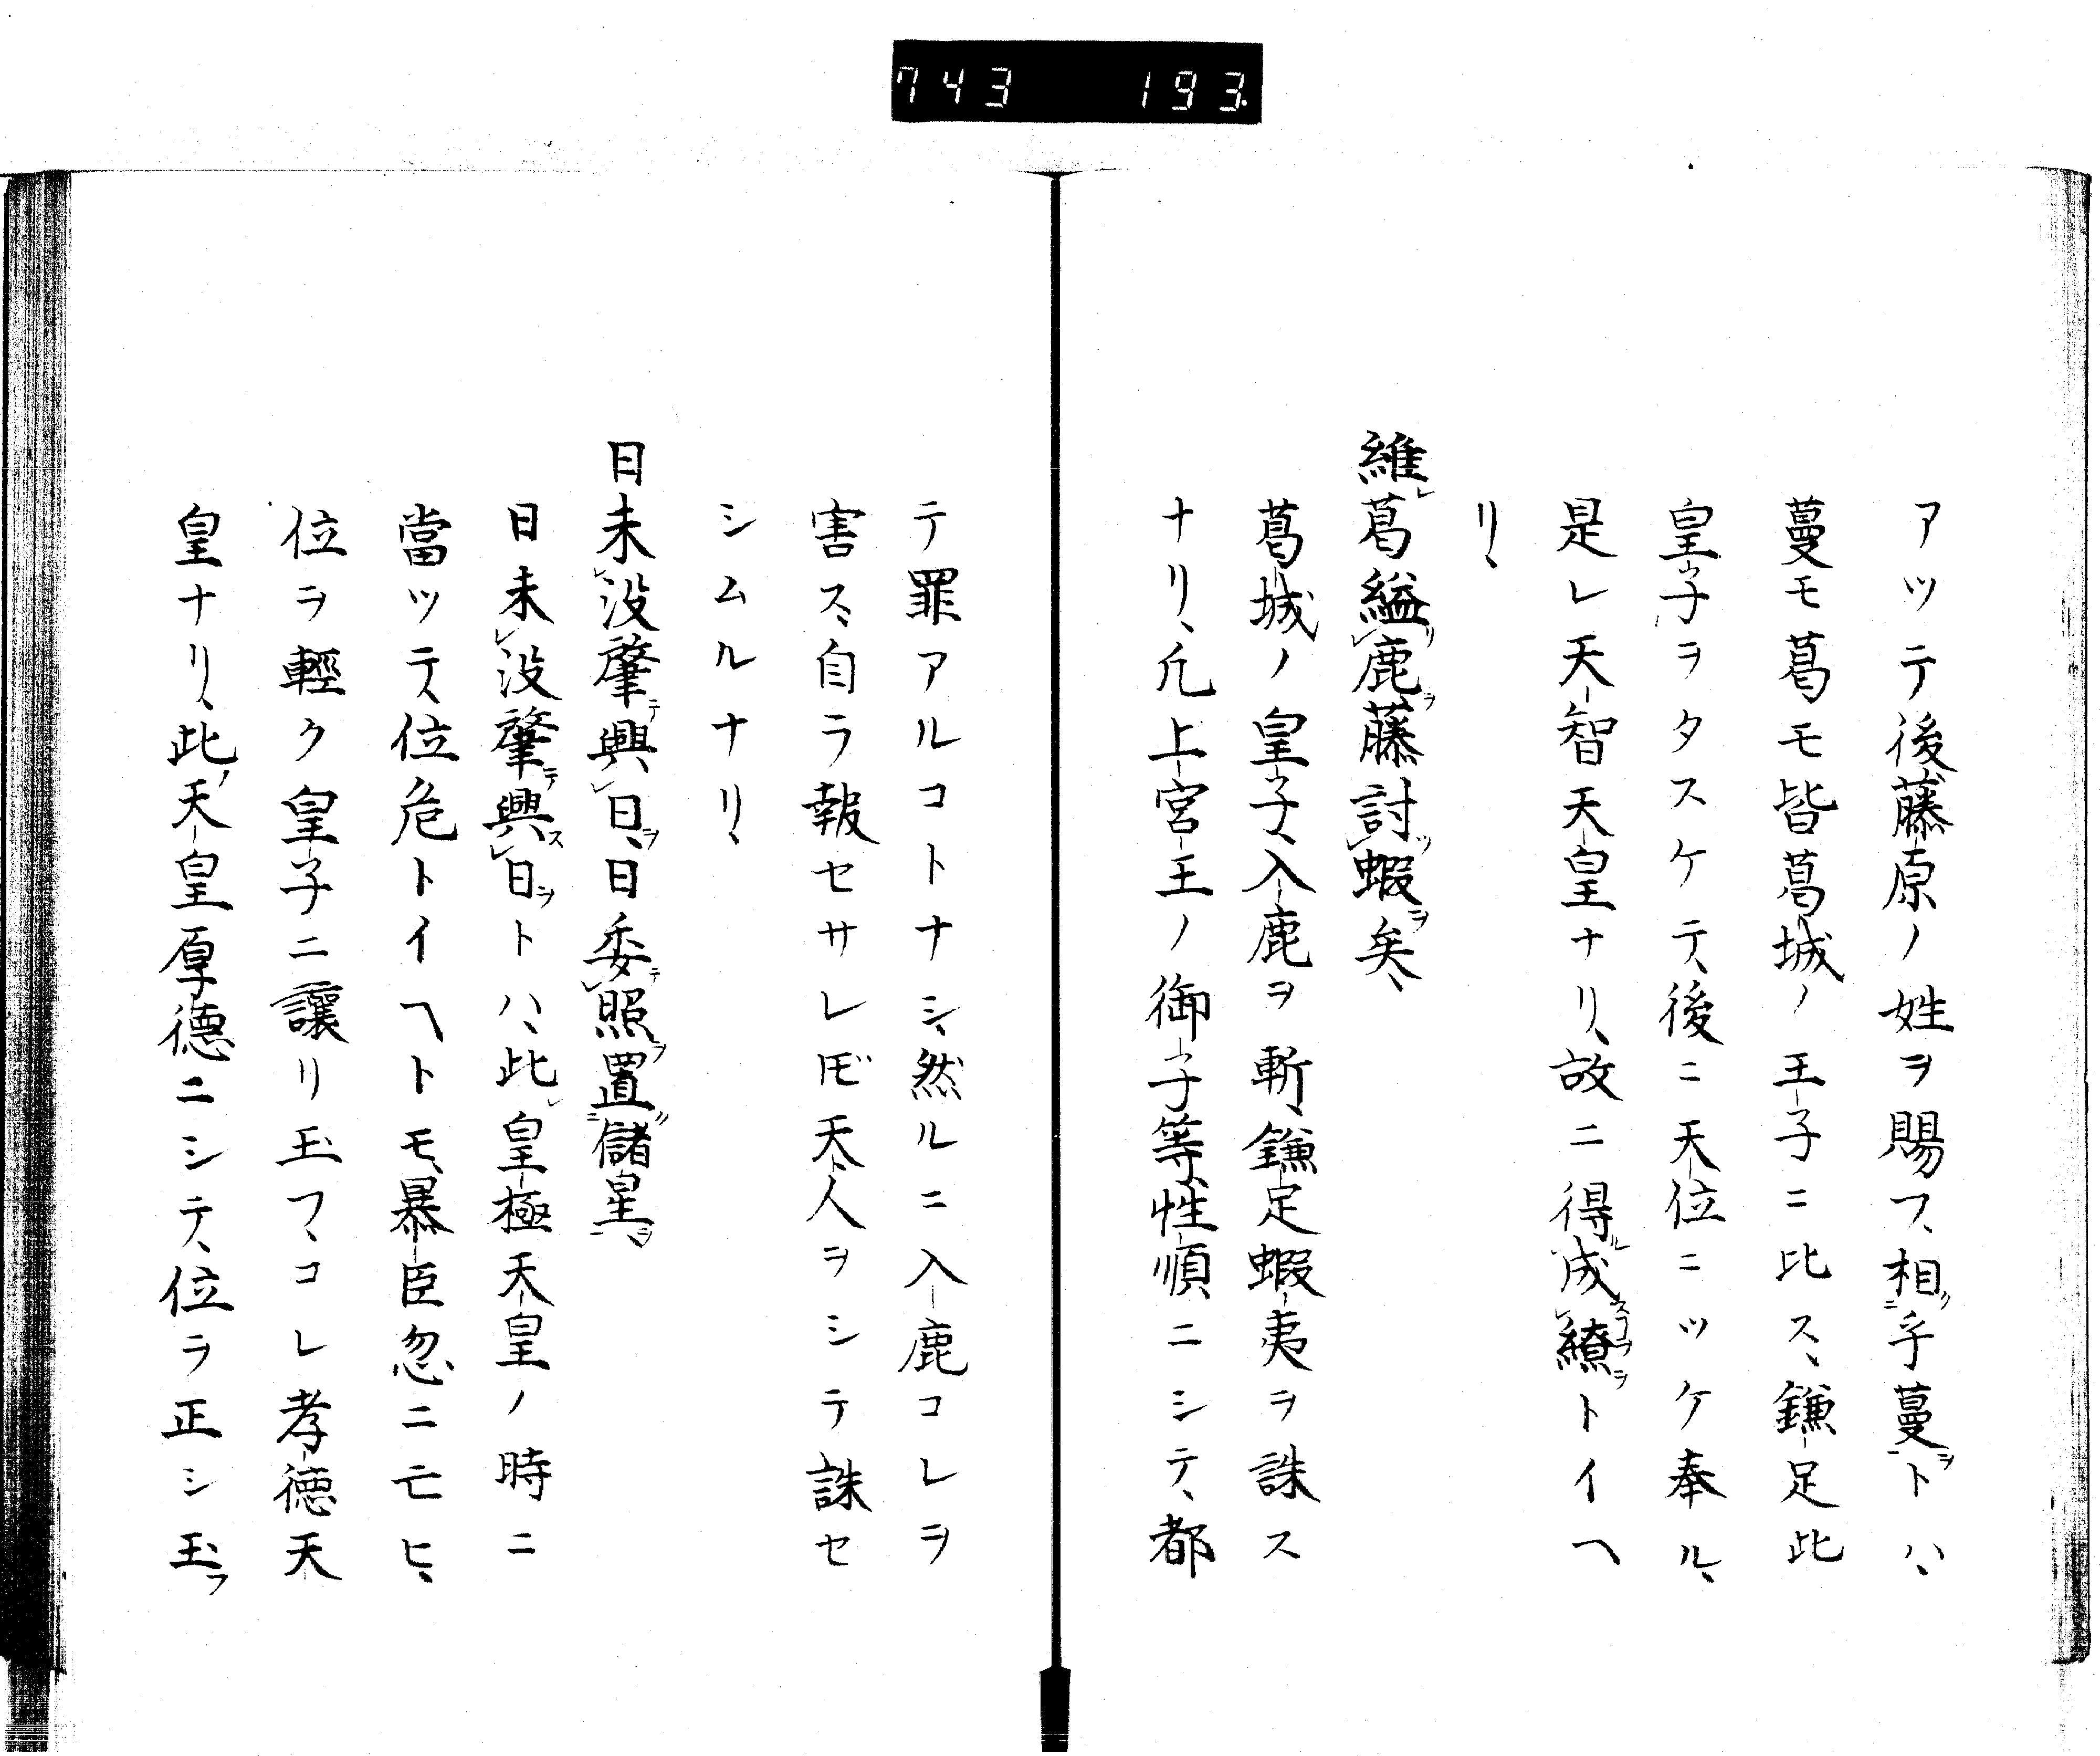 743 193.
アツテ後藤原ノ姓ヲ賜フ、相乎蔓トハ、
蔓モ葛モ皆葛城ノ王子ニ比ス、鎌足此
皇子ヲタスケテ、後ニ天位ニツケ奉ル、
是レ天智天皇ナリ、故ニ得成繚トイヘ
リ、
維葛縊鹿藤討蝦矣、
葛城ノ皇子、入鹿ヲ斬、鎌足蝦夷ヲ誅ス
ナリ、凢上宮王ノ御子等、性順ニシテ、都
テ罪アルコトナシ、然ルニ入鹿コレヲ
害ス、自ラ報セサレ𪜈天人ヲシテ誅セ
シムルナリ、
日未没肇興日、日委照置儲星、
日未没肇興日トハ、此皇極天皇ノ時ニ
當ツテ、位危トイヘトモ、暴臣忽ニ亡ヒ、
位ヲ輕ク皇子ニ讓リ玉フ、コレ孝徳天
皇ナリ、此天皇厚德ニシテ、位ヲ正シ玉フ